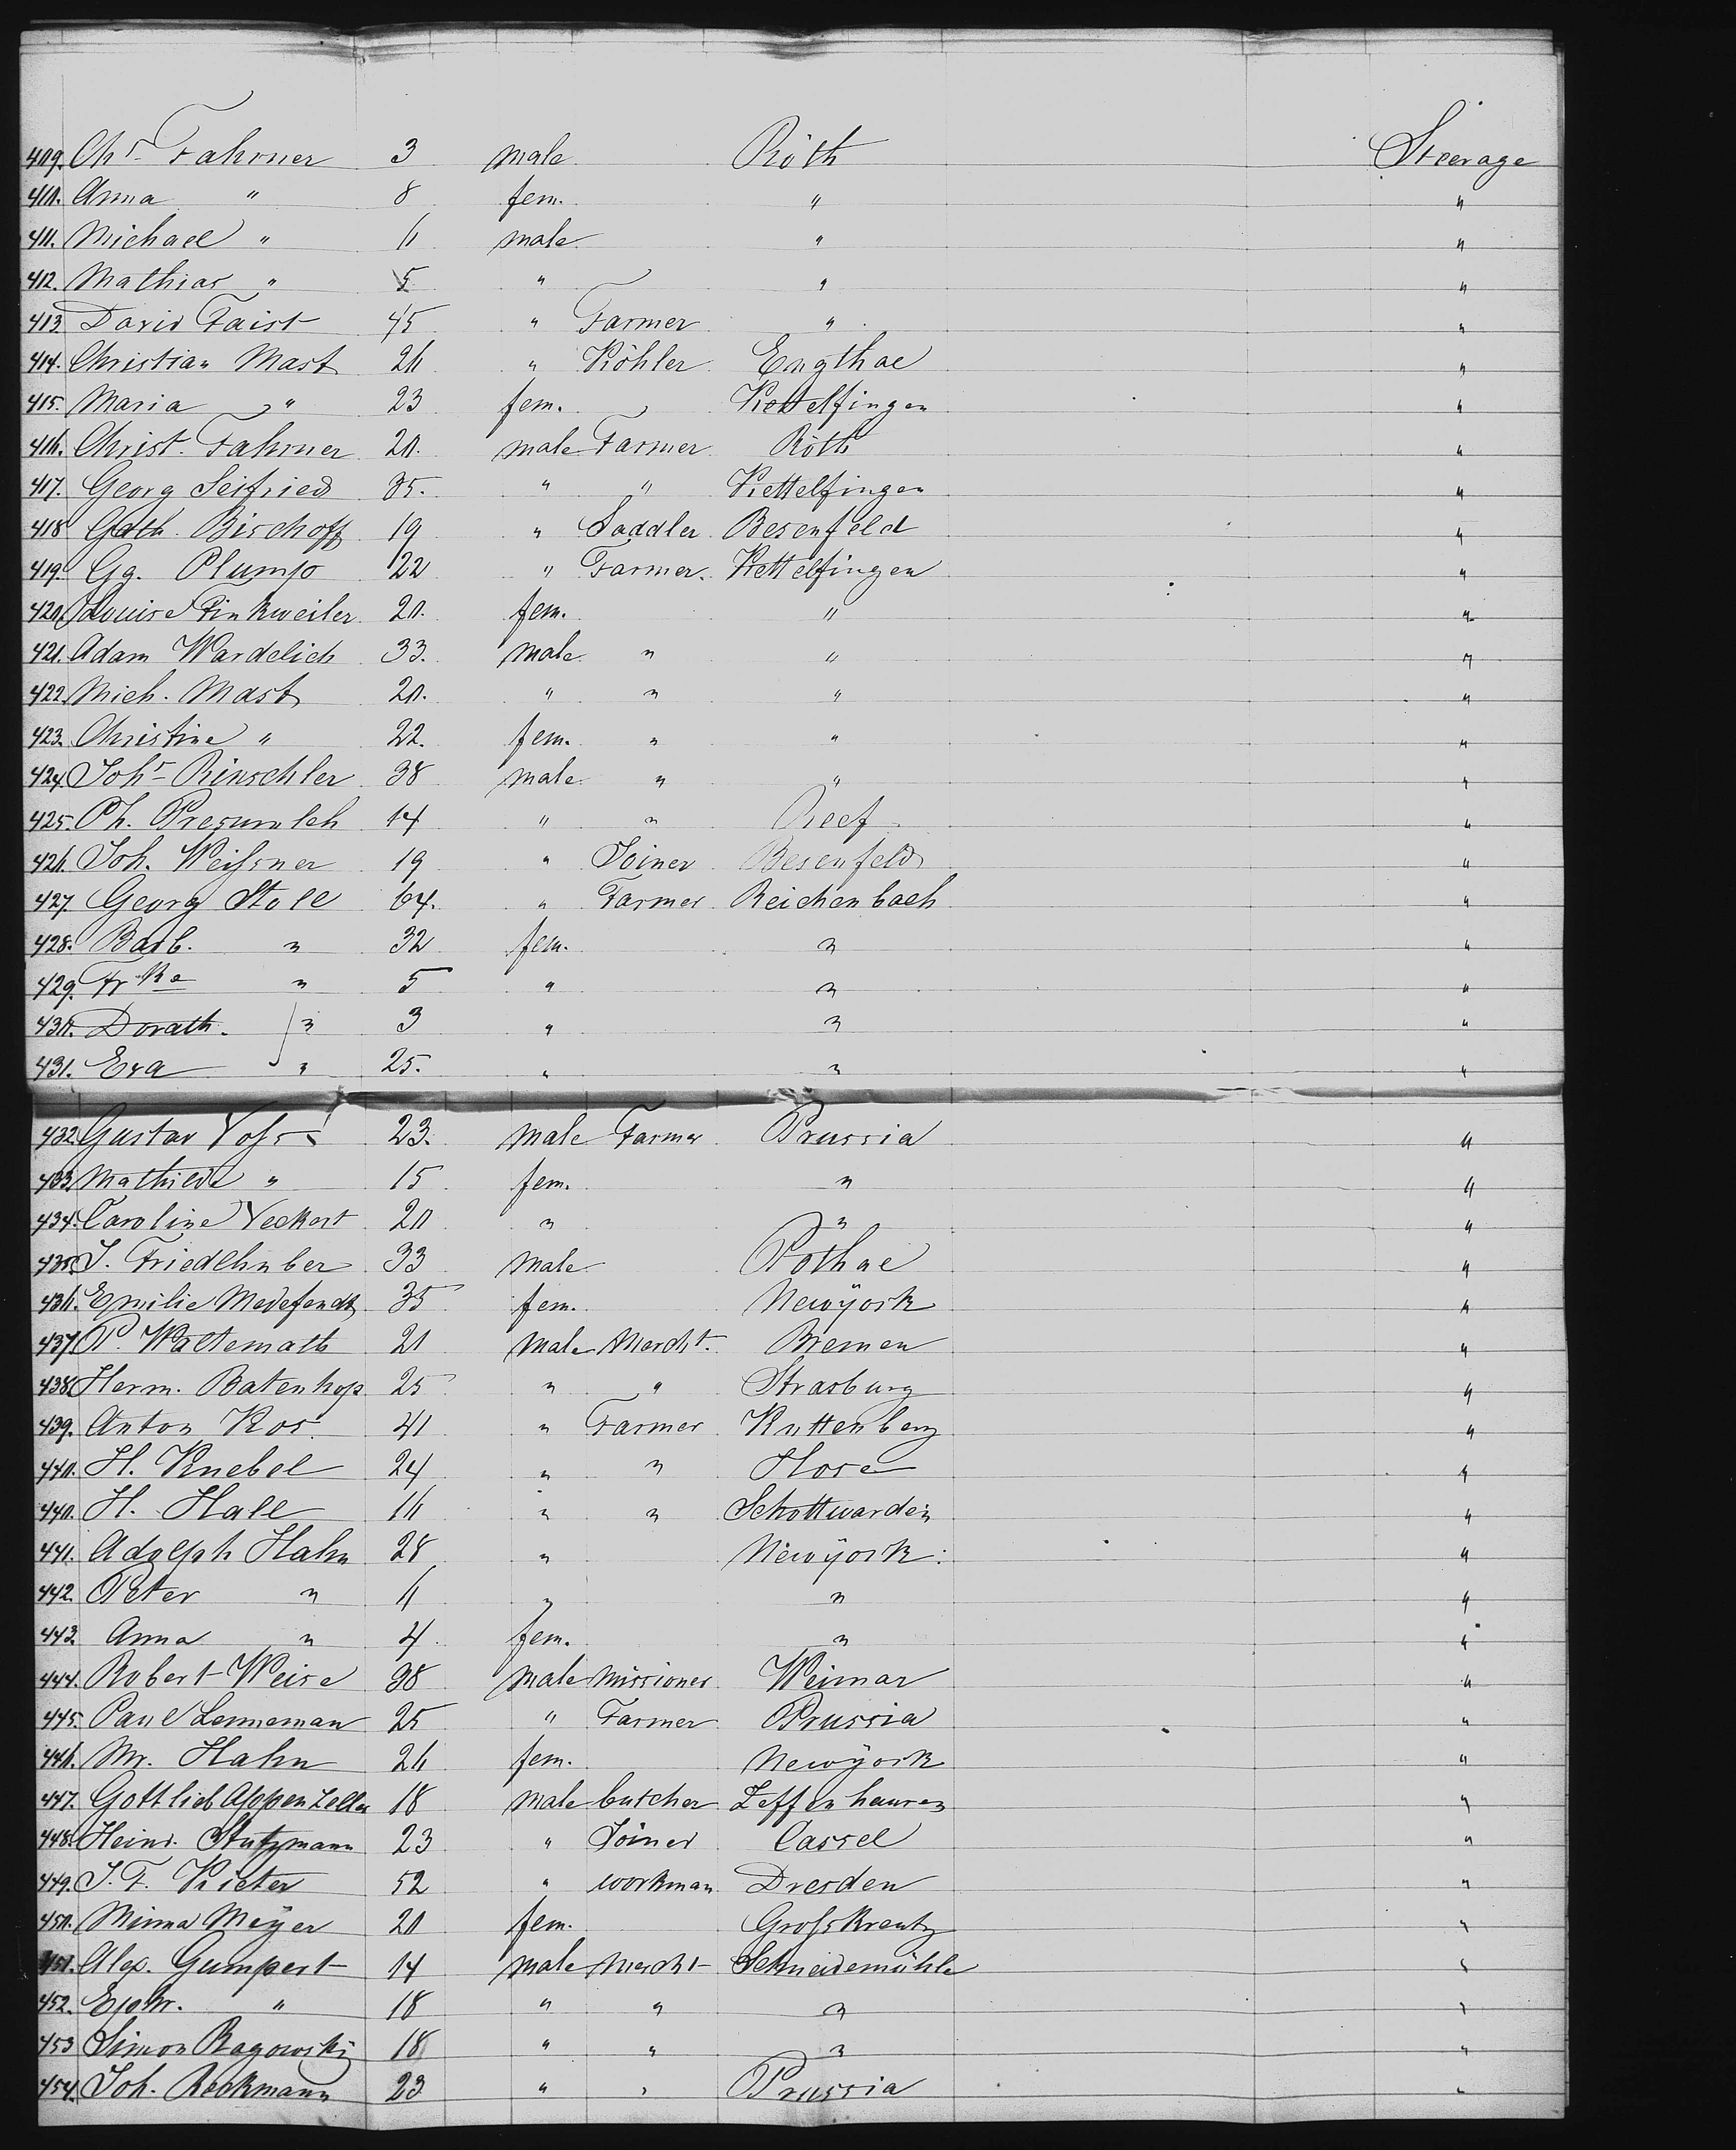 409. Chr. Fahrner 3 male Röth Steerage
410. Anna " 8 fem. " "
411. Michael " 6 male " "
412. Mathias " 5 " " "
413. David Faist 45 " Farmer " "
414. Christian Mast 26 " Köhler Engthal "
415. Maria " 23 fem. Kettelfingen "
416. Christ. Fahrner 20. male Farmer Röth "
417. Georg Seifried 35. " " Kettelfingen "
418 Gottl. Bischoff 19 " Saddler Besenfeld "
419. Gg. Plumpo 22 " Farmer. Kettelfingen "
420. Louise Finkweiler 20. fem. " "
421. Adam Wardelich 33. male " " "
422. Mich. Mast 20. " " " "
423. Christine " 22. fem. " " "
424. Johs Rinschler 38 male " " "
425. Ph. 14 " " Reef "
426. Joh. Weißner 19 " Joiner Besenfeld "
427. Georg Stoll 64. " Farmer Reichenbach "
428. Barb. " 32 fem. " "
429. Frke " 5 " " "
430. Dorath. " 3 " " "
431. Eva " 25. " " "
432. Gustav Voss 23. male Farmer Prussia "
433. Mathilde " 15 fem. " "
434. Caroline Veckert 20 " " "
435. J. Friedlhuber 33 male Rothal "
436. Emilie Medefendt 35 fem. Newyork "
437. P. Waltemath 21 male Mercht. Bremen "
438. Herm. Batenhop 25 " " Strasburg "
439. Anton Kos. 41 " Farmer Kuttenberg "
440. H. Knebel 24 " " Hose "
440. H. Hall 16 " " Schottwarden "
441. Adolph Hahn 28 " Newyork "
442. Peter " 6 " " "
443. Anna " 4 fem. " "
444. Robert Weise 38 male missioner Weimar "
445. Paul Lenneman 25 " Farmer Prussia "
446. Mr. Hahn 26 fem. Newyork "
447. Gottlieb Appenzeller 18 male butcher Zeffenhausen "
448. Heinr. Stutzmann 23 " Joiner Cassel "
449. J. F. Kieter 52 " workman Dresden "
450. Minna Meyer 20 fem. Großkreutz "
451. Alex. Gumpert 14 male Mercht Schneidemühle "
452. Ephr. " 18 " " " "
453 Simon Ragowski 18 " " " "
454. Joh. Reckmann 23 " " Prussia "